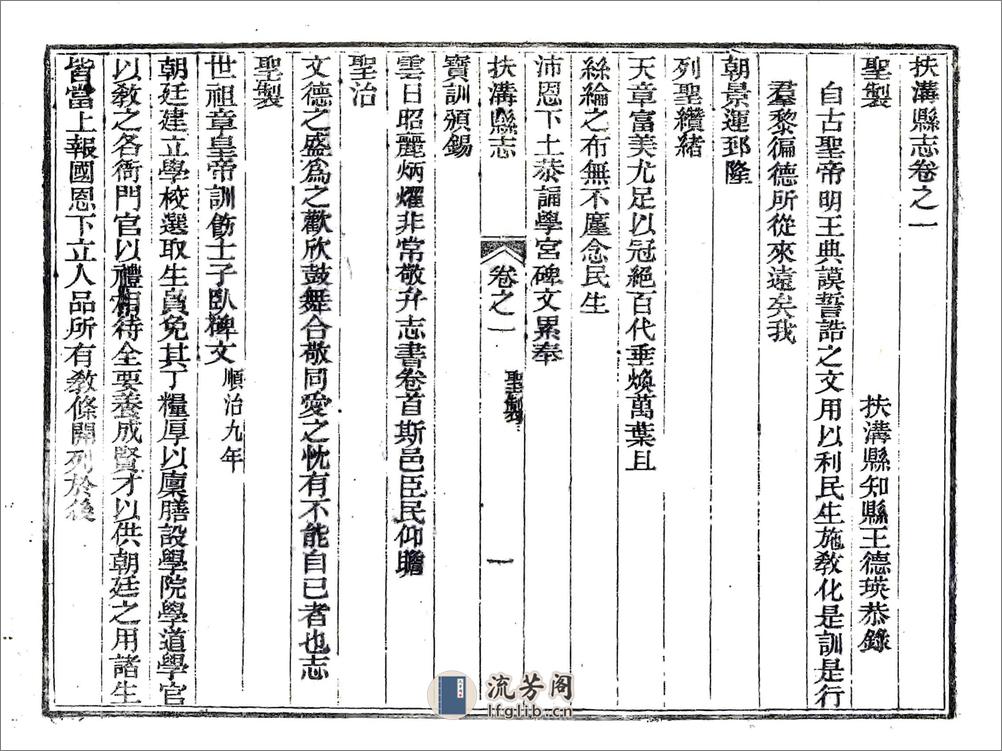 扶溝縣志卷之一
聖製
扶溝縣知縣王德瑛恭錄
自古聖帝明王典謨誓誥之文用以利民生施教化是訓是行
羣黎徧德所從來遠矣我
朝景運郅隆
列聖纘緒
天章富美尤足以冠絕百代垂煥萬葉且
絲綸之布無不廑念民生
沛恩下土恭誦學宮碑文累奉
扶溝縣志
卷之一
聖製
一
寶訓頒錫
雲日昭麗炳燿非常敬弁志書卷首斯邑臣民仰瞻
聖治
文德之盛爲之歡欣鼓舞合敬同愛之忱有不能自已者也志
聖製
世祖章皇帝訓飭士子臥碑文
順治九年
朝廷建立學校選取生員免其丁糧厚以廩膳設學院學道學官
以敎之各衙門官以禮相待全要養成賢才以供朝廷之用諸生
皆當上報國恩下立人品所有敎條開列於後
流芳阁
lfglib.cn